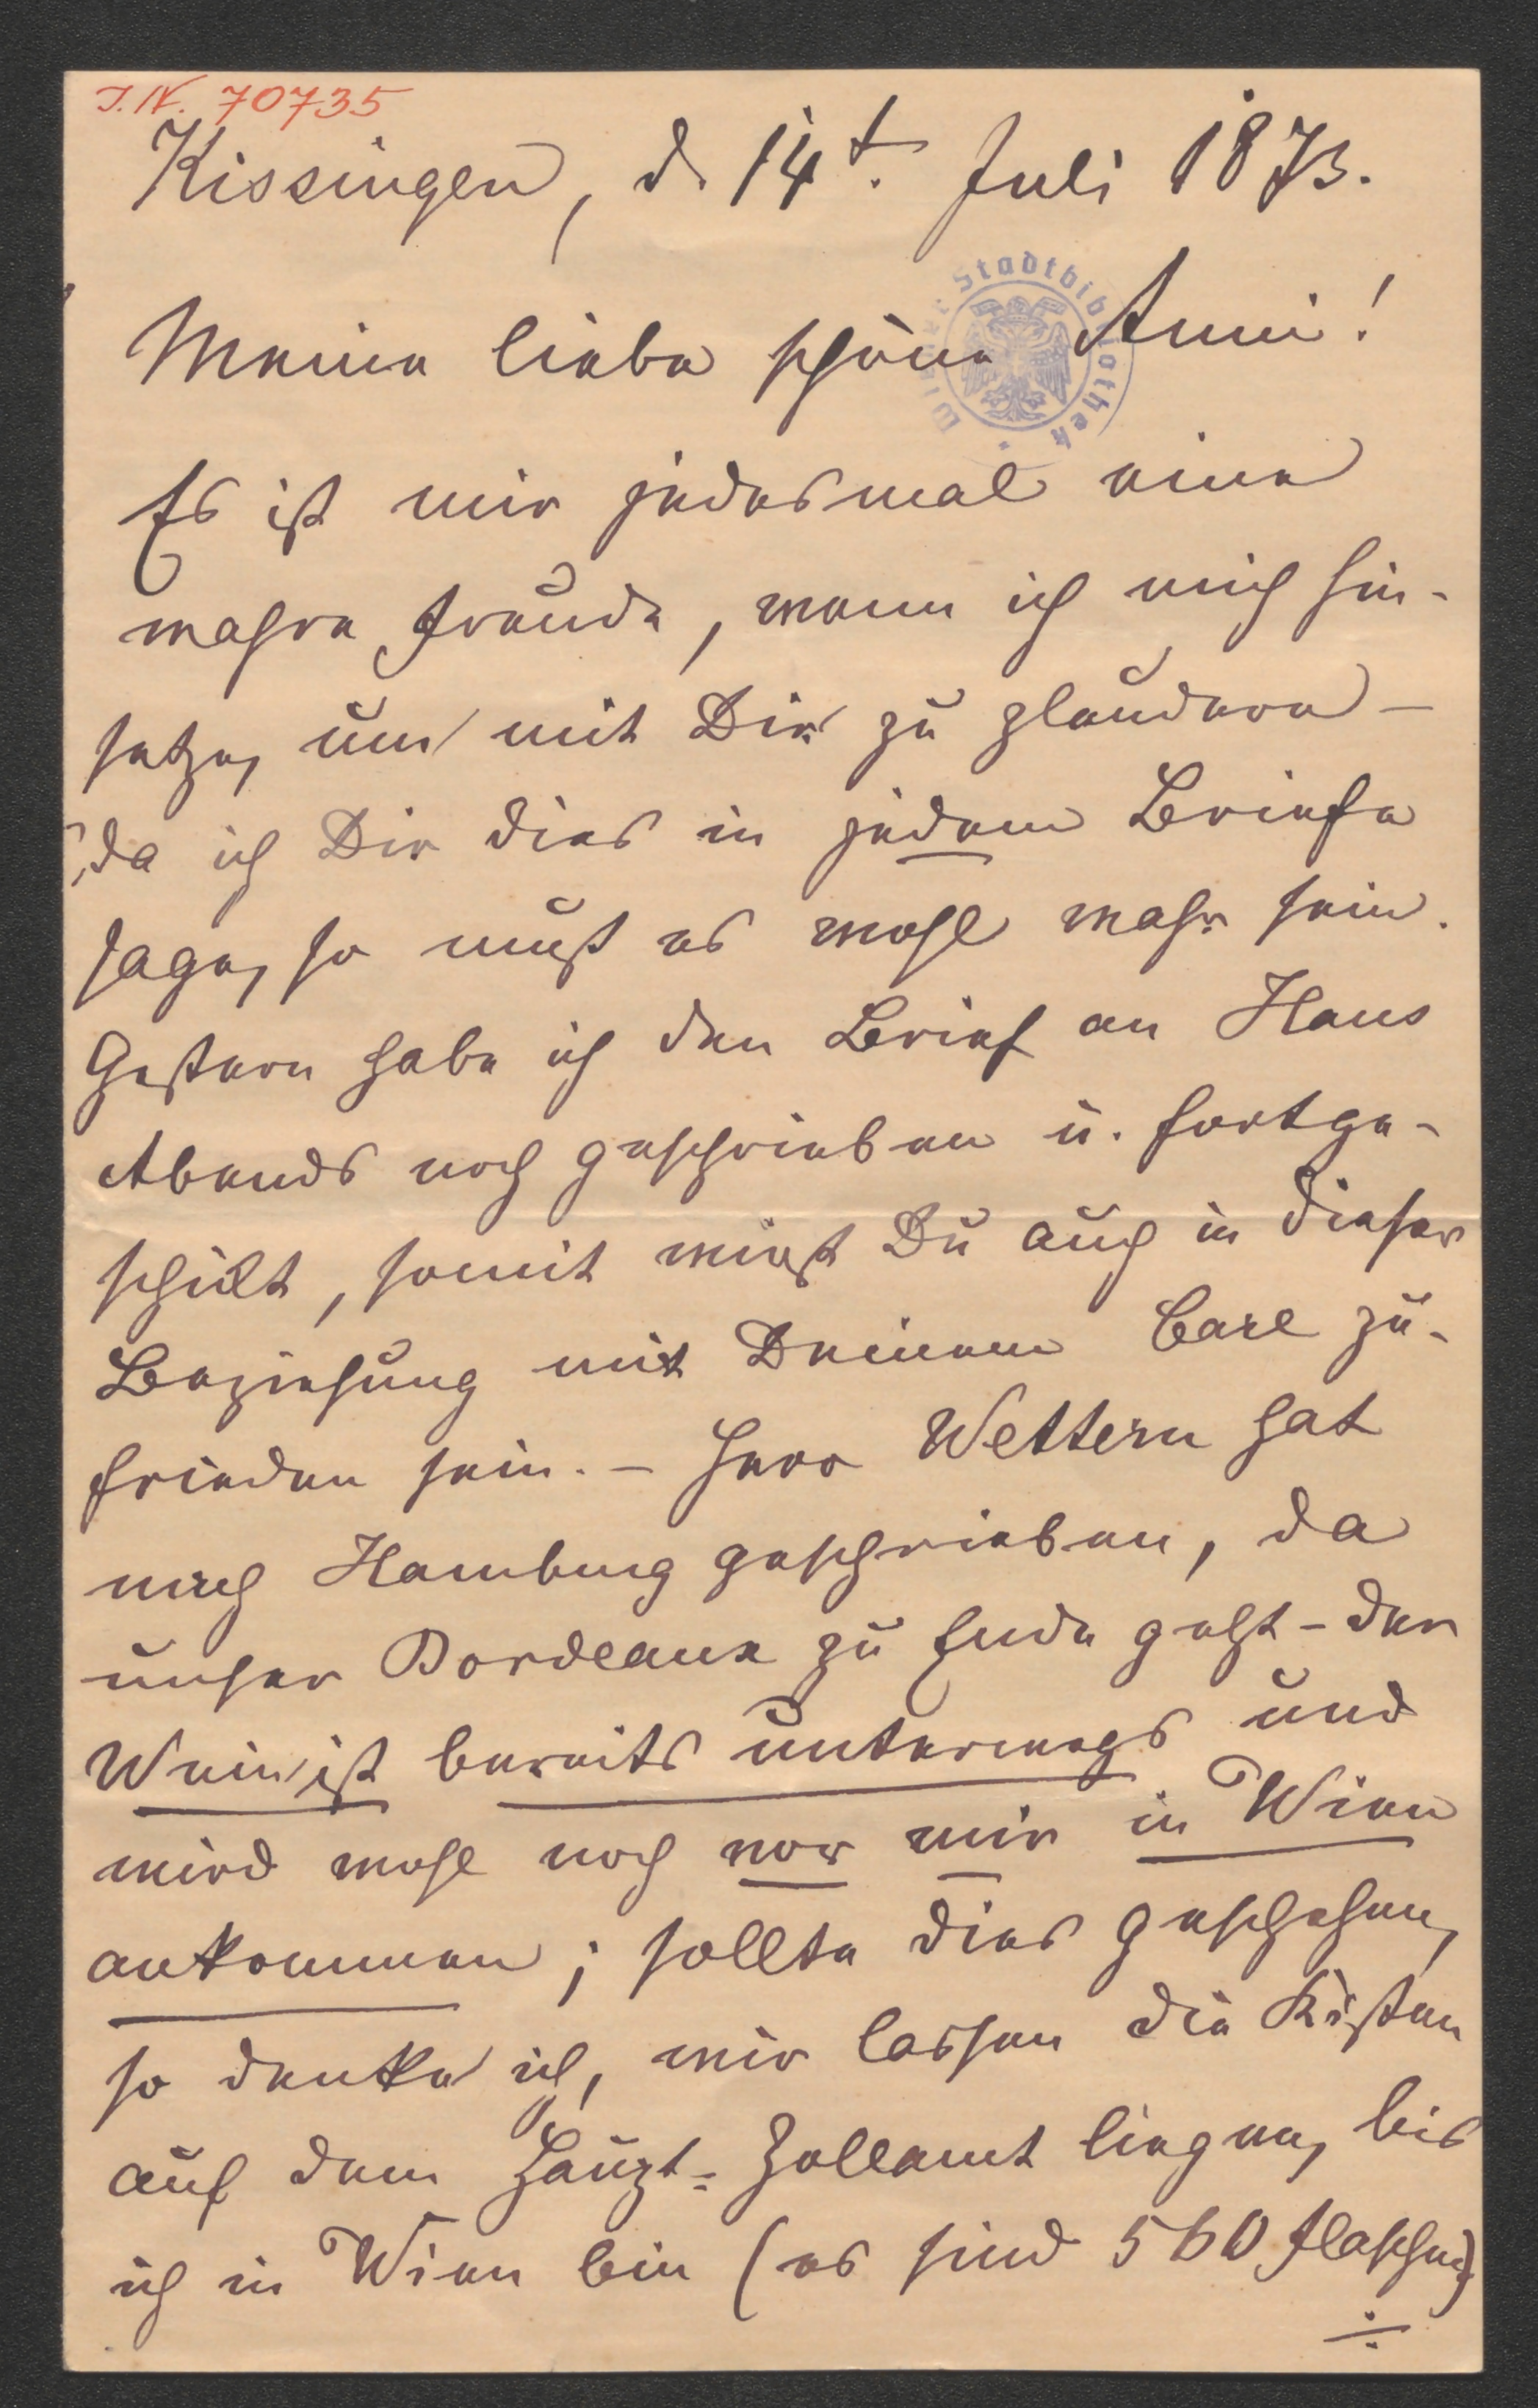 J.N. 70735
Kissingen, d. 14t. Juli 1873.
Wiener Stadtbibliothek
Meine liebe schöne Anni!
Es ist mir jedesmal eine
wahre Freude, wenn ich mich hin-
setze, um mit Dir zu plaudern –
da ich Dir dies in jedem Briefe
sage, so muß es wohl wahr sein.
Gestern habe ich den Brief an Hans
Abends noch geschrieben u. fortge-
schickt, somit wirst Du auch in dieser
Beziehung mit Deinem Carl zu-
frieden sein. – Herr Wettern hat
nach Hamburg geschrieben, da
unser Bordeaux zu Ende geht – der
Wein ist bereits unterwegs und
wird wohl noch vor mir in Wien
ankommen; sollte dies geschehen,
so denke ich, wir lassen die Kisten
auf dem Haupt-Zollamt liegen, bis
ich in Wien bin (es sind 560 Flaschen)
÷